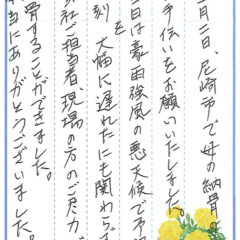 月二日、尼崎市で母の納骨の
手伝いをお願いいたしました。
当日は豪雨強風の悪天候で予
刻を大幅に遅れたにも関わらず
社ご担当者、現場の方のご尽力
骨することができました。
当にありがとうございました。